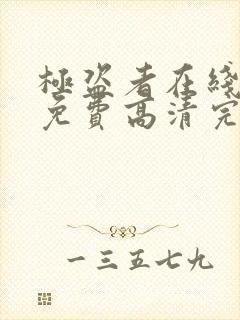 極盜者在綫
免費高清完
一三五七九